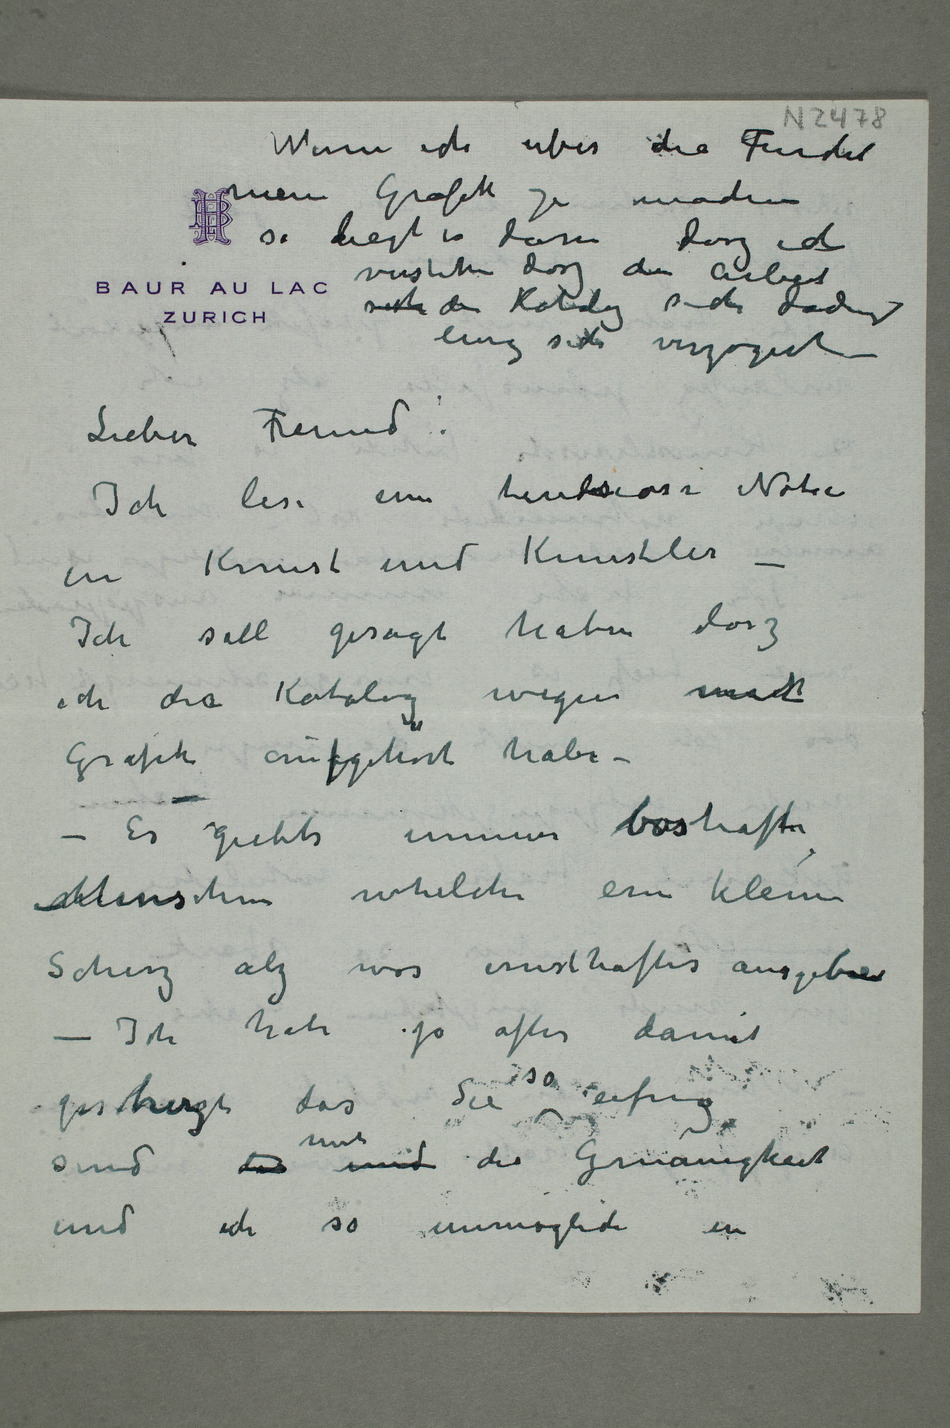 N 2478
Wenn ich uber die
mein Grafik zu machen
so liegt es darin dasz ich
verstehe dasz die Arbeit
mit den Katalog sich dadurch
lang sich verzögert –
BAUR AU LAC
ZURICH
Lieber Freund!
Ich lese eine tendsiose Notie
in Kunst und Kunstler –
Ich soll gesagt haben dasz
ich des Katalog wegen mit
Grafik aufgehört habe –
– Es giebts immer boshafte
Menschen whelche ein kleine
Scherz alz was ernsthaftes ausgeben
– Ich habe ja ofter damit
gescherzt das Sie so eifrig
sind mit und die Genauigkeit
und ich so unmoglich in